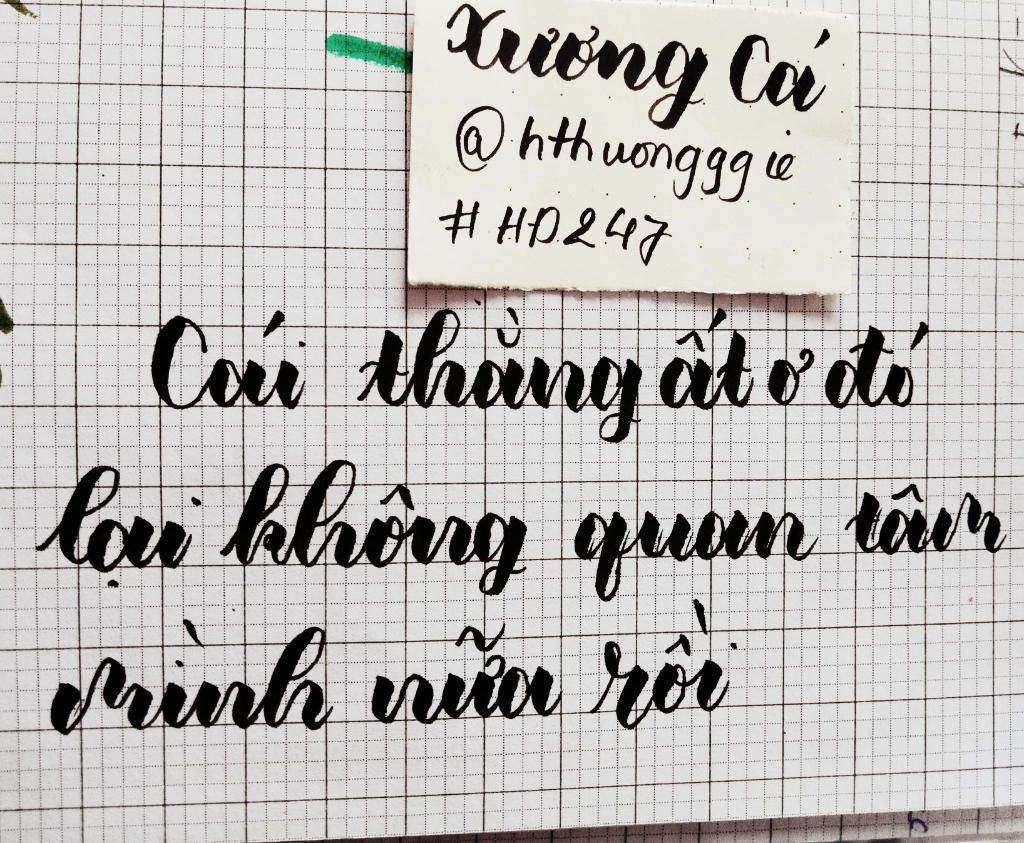 Xương Cá
@hthuongggie
#HD247
Cái thằng ất ơ đó
lại không quan tâm
mình nữa rồi